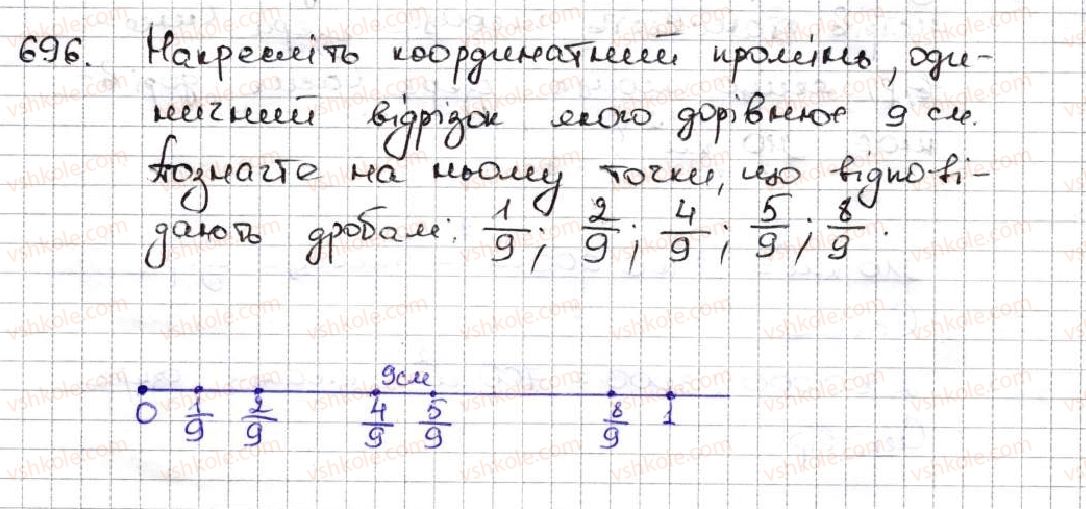 696. Накресліть координатний промінь, оди-
ничний відрізок якого дорівнює 9 см.
Позначте на ньому точки, що відпові-
дають дробам: 1/9; 2/9; 4/9; 5/9; 8/9.
9см
0 1/9 2/9 4/9 5/9 8/9 1